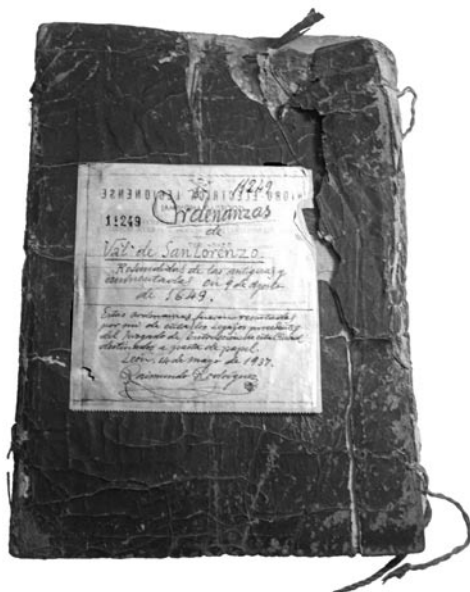 HIDRO ELECTRICA LEGIONENSE
11249
11249
Ordenanzas
de
Val de San Lorenzo.
Refundidas de las antiguas y
aumentadas en 9 de Agosto
de 1649.
Estas ordenanzas fueron rescatadas
por mí de los legajos
del Juzgado de Instrucción
destinados a pasta de papel.
León, 14 de mayo de 1937.
Raimundo Rodríguez